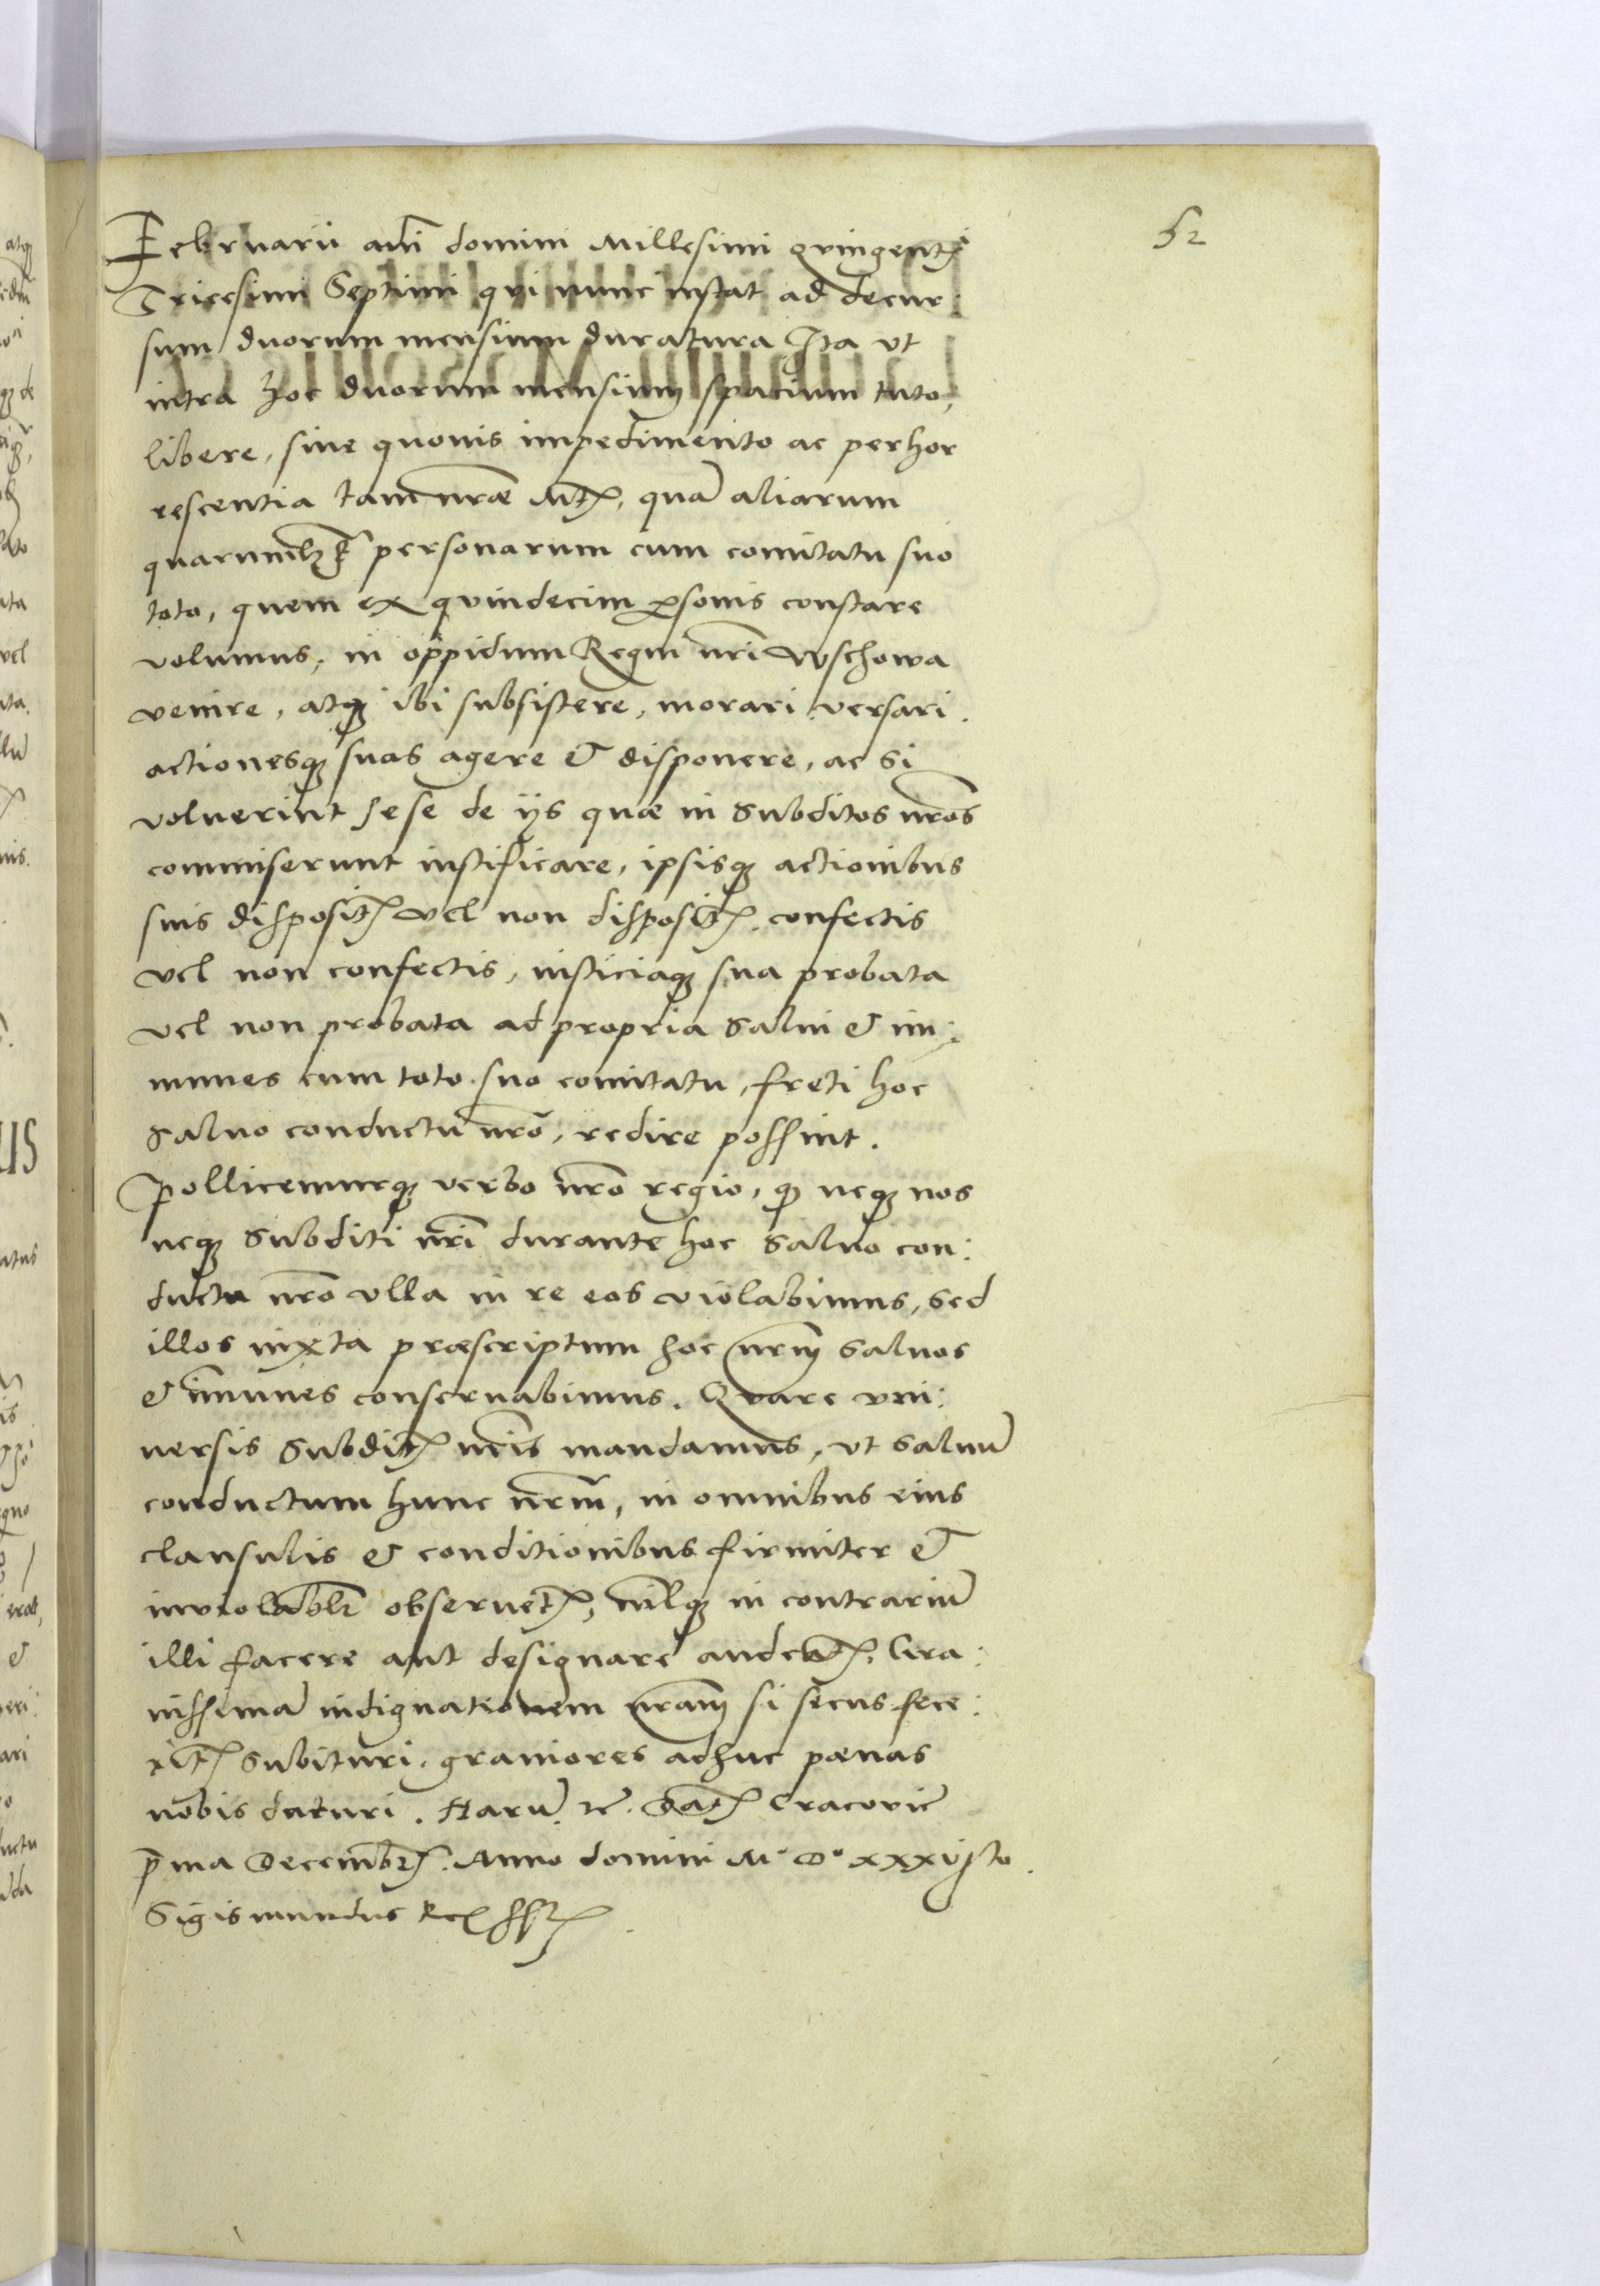 52
Februarii anñi domini Millesimi quingentꝭi
Tricesimi Septimi qui nunc instat ad decur:
sum duorum mensium duratura Ita vt
intra hoc duorum mensium spacium tuto,
libere, sine quouis impedimento ac perhor
rescentia tam nr̃æ Mtꝭ, quā aliarum
personarum cum comitatu suo
toto, quem ex quindecim ꝑsonis constare
volumus, in oppidum Regni nr̃i Wschowa
venire, atqꝫ ibi subsistere, morari versari.
actionesqꝫ suas agere & disponere, ac si
voluerint sese de ijs quæ in Subditos nr̃os
commiserunt iustificare, ipsisqꝫ actionibus
suis dispositꝭ vel non dispositꝭ. confectis
vel non confectis, iusticiaqꝫ sua probata
vel non probata ad propria Salui & im:
munes cum toto suo comitatu, freti hoc
Saluo conductu nr̃o, redire possint.
Pollicemurqꝫ verbo nr̃o regio, ꝙ neqꝫ nos
neqꝫ Subditi nr̃i durante hoc Saluo con:
ductu nr̃o vlla in re eos violabimus, Sed
illos iuxta præscriptum hoc nr̃m Saluos
& im̃unes conseruabimus. Quare vni:
uersis Subditꝭ nr̃is mandamus, vt Saluū
conductum hunc nr̃m, in omnibus eius
clausulis & conditionibus firmiter &
inviolabl̃r obseruẽtꝭ, nilqꝫ in contrariū
illi facere aut designare audeãtꝭ, Gra:
uissemā indignationem nr̃am si secus fece:
rĩtꝭ Subituri. grauiores adhuc pœnas
nobis daturi. Harū ꝛc. Datꝭ Cracovie
p̃ma Decembrꝭ. Anno domini Mº Dº xxxvjto.
Sigismundus Rex sstꝭ.